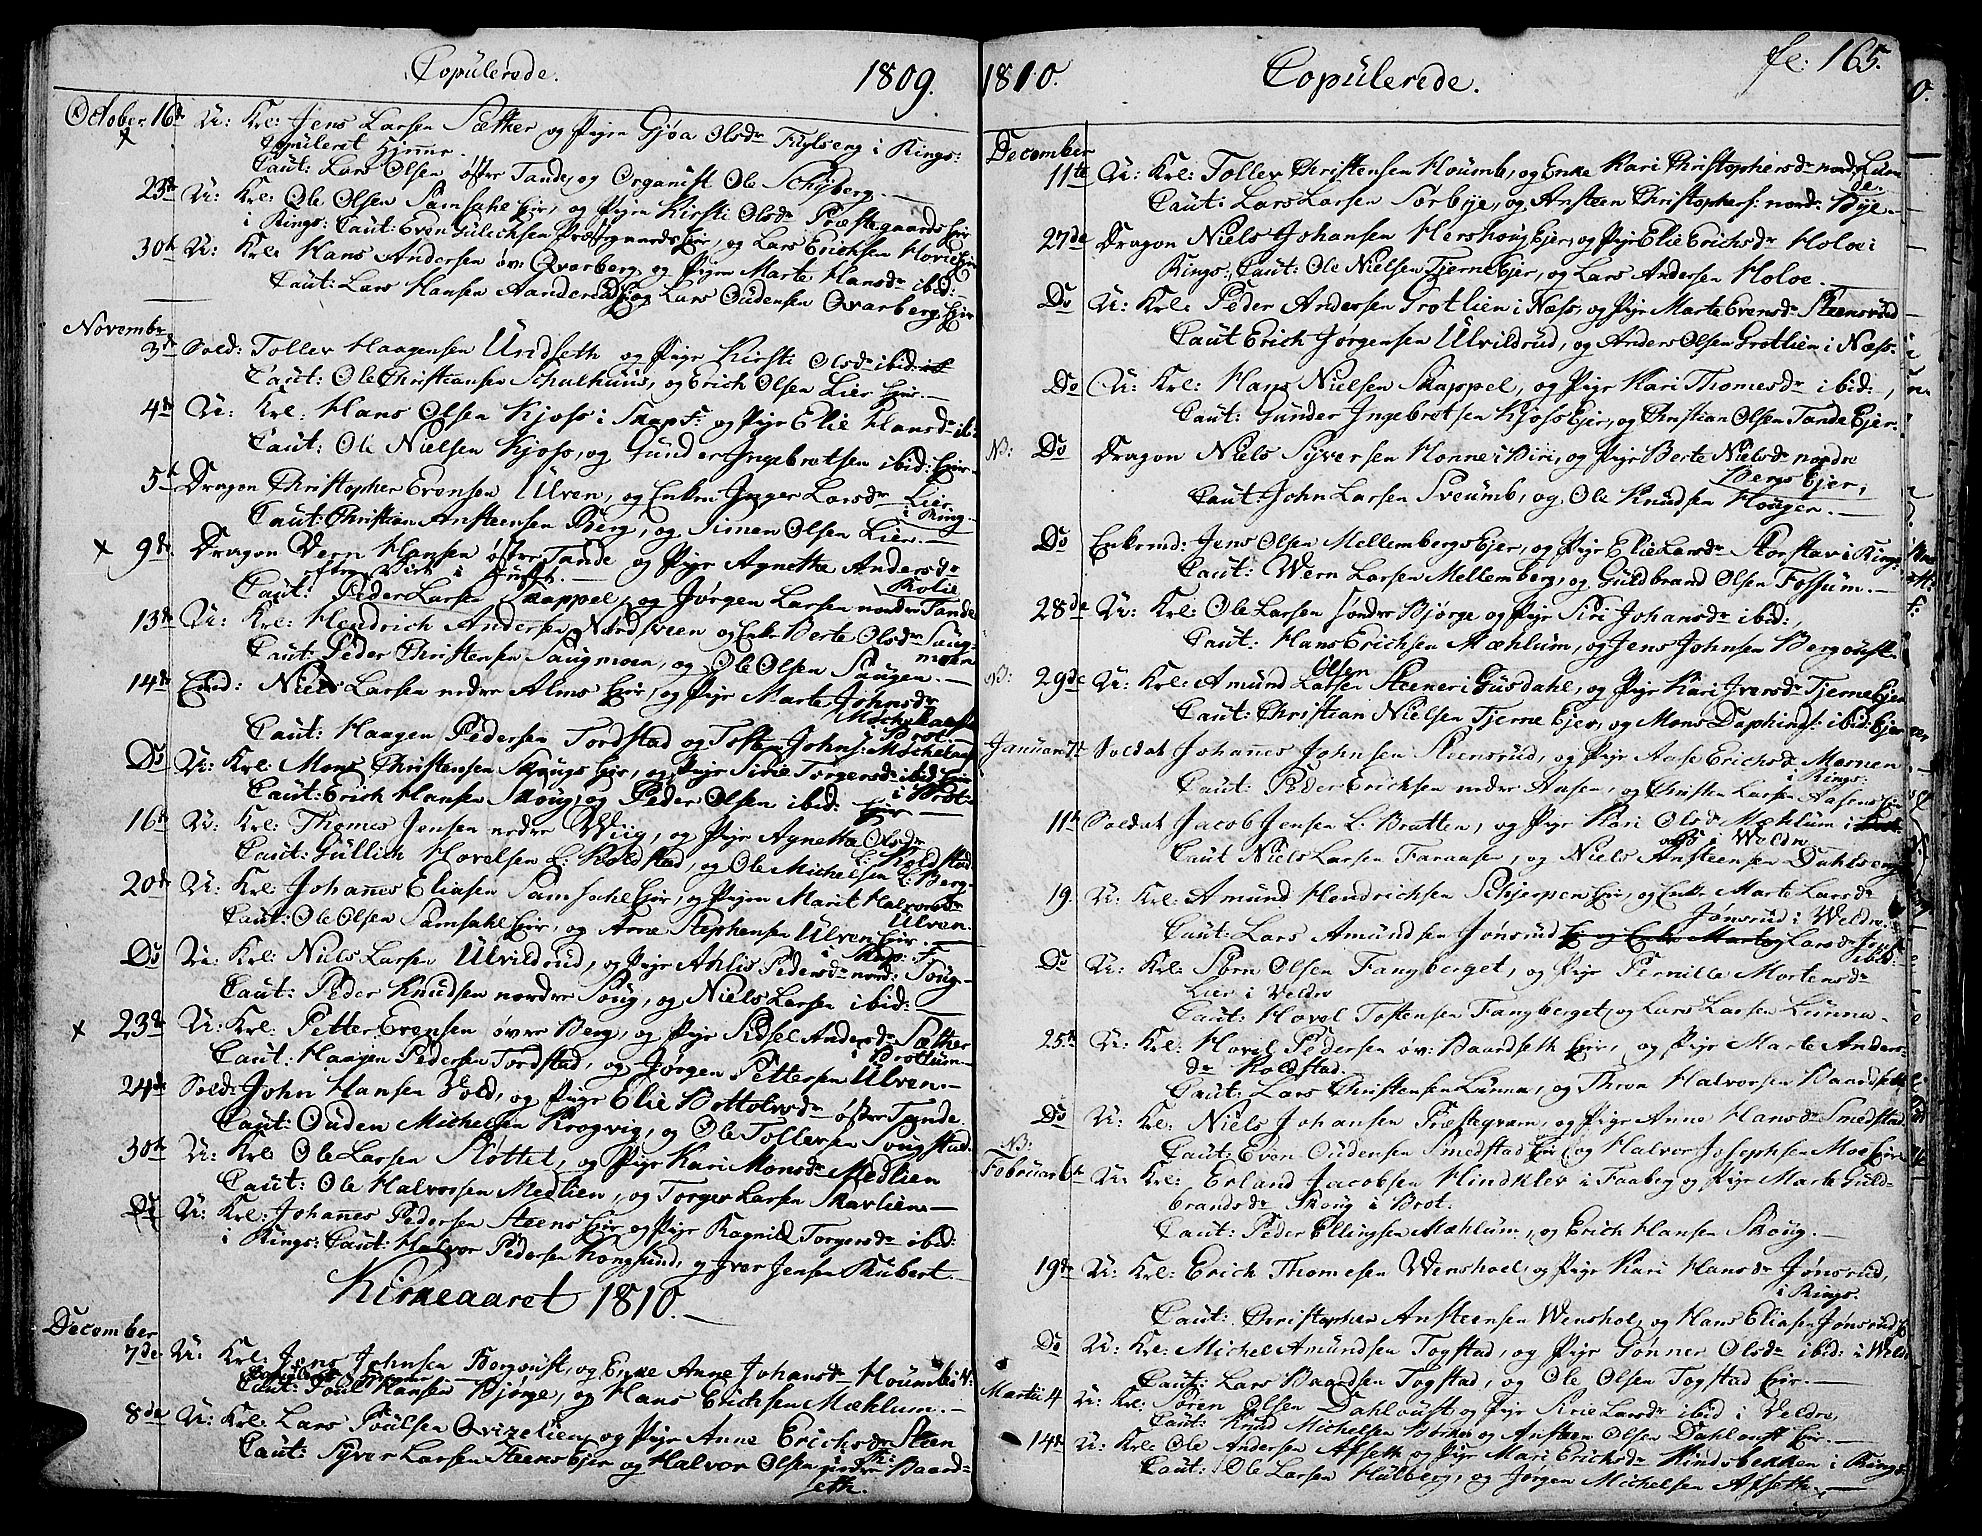 Copulerede. 1809.
October 16de U: Krl: Jens Larsen Sæther og Pigen Gjøa Olsdr Fylberg i Rings:
copuleret hjemme.
Caut: Lars Olsen østre Tande, og Organist Ole Schyberg.
23de U: Krl: Ole Olsen Samsahl Eier, og Pigen Kirsti Olsdr Præstegaards Eier
i Rings: Caut: Even Gulichsen Præstegaards Eier, og Lars Erichsen Hovie Eier
30te U: Krl: Hans Andersen øv: Qvarberg, og Pigen Marte Hansdr ibid:
Caut: Lars Hansen Aanderud Eier og Lars Oudensen Qvarberg Eier
Novembr
3de Sold: Tollev Haagensen Undseth og Pige Kirsti Olsdr ibid:
Caut: Ole Christiansen Schulhuus, og Erich Olsen Lier Eier.
4de U: Krl: Hans Olsen Kjoss i Skaps: og Pige Elie Hansdr ib:
Caut: Ole Nielsen Kjoss, og Gunder Ingebretsen ibid: Eier
5te Dragon Christopher Evensen Ulven, og Enken Inger Larsdr Lier
i Ring
Caut: Christian Ansteensen Berg, og Simen Olsen Lier.
x 9de Dragon Vern Hansen østre Tande og Pige Agnethe Andersdr
Holie
Caut: Peder Larsen Skappel, og Jørgen Larsen nordre Tande
13de U: Krl: Hendrich Andersen Nordsveen og Enke Berte Olsdr Saug-
moen
Caut: Peder Christensen Saugmoen, og Ole Olsen Saugen.
14de Enkd: Niels Larsen nedre Alms Eier, og Pige Marte Johnsdr
Mochelaast
i Brot.
Caut: Haagen Pedersen Tordstad og Tosten Johns: Mochelaast
Do U: Krl: Mons Christensen Skougs Eier, og Pige Sirie Torgersdr ibid: Eier
i Brot.
Caut: Erich Hansen Skoug, og Peder Olsen ibid: Eier
16te U: Krl: Thomes Jensen nedre Wiig, og Pige Agnethe Olsdr
L: Kolstad
Caut: Gullich Hovelsen L: Kolstad, og Ole Michelsen L: Berg
20de U: Krl: Johanes Eliasen Samsahl Eier, og Pigen Marit Halvorsdr
Ulven.
Caut: Ole Olsen Samsahl Eier, og Arne Stephensen Ulven Eier.
Do U: Krl: Niels Larsen Ulvildrud, og Pige Ahlis Pedersdr nord: Soug
Caut: Peder Knudsen nordre Soug, og Niels Larsen ibid:
x 23de U: Krl: Petter Evensen øvre Berg, og Pige Sidsel Andersdr Sæther
i Brottum
Caut: Haagen Pedersen Tordstad, og Jørgen Pettersen Ulven
24de Sold: John Hansen Vold, og Pige Elie Bottolvsdr østre Tande.
Caut: Ouden Michelsen Krogvig, og Ole Tollevsen Sougstad.
30te U: Krl: Ole Larsen Slottet, og Pige Kari Monsdr Medlien
Caut: Ole Halvorsen Medlien, og Torger Larsen Skavlien
Do U: Krl: Johanes Pedersen Steens Eier og Pige Ragnild Torgersdr ibid:
i Rings: Caut: Halvor Pedersen Kongsund, og Iver Jensen Kubert.
Kirkeaaret 1810.
December
7de U: Krl: Jens Johnsen Borqvist, og Enke Anne Johansdr Houmb i V:
Caut: Poul Hansen Bjørge, og Hans Erichsen Mæhlum.
8de U: Krl: Lars Poulsen Qvizelien, og Pige Anne Erichsdr Steen
Caut: Syver Larsen Steens Eier og Halvor Olsen nedre Baard-
seth.
1810. Copulerede. fl: 165.
December
11te U: Krl: Tollev Christensen Houmb, og Enke Kari Christophersdr nord: Lun
de.
Caut: Lars Larsen Sorbye, og Ansteen Christophers: nord: Bye
27de Dragon Niels Johansen Hershoug Eier, og Pige Elie Erichsdr Holoe i
Rings: Caut: Ole Nielsen Tjerne Eier, og Lars Andersen Holoe.
Do U: Krl: Peder Andersen Grotlien i Næss, og Pige Marte Evensdr Steensrud
Caut Erich Jørgensen Ulvildrud, og Anders Olsen Grotlien i Næss.
Do U: Krl: Hans Nielsen Skappel, og Pige Kari Thomesdr ibid:,
Caut: Gunder Ingebretsen Kjoss Eier, og Christian Olsen Tande Eier.
NB: Do Dragon Niels Syversen Honne i Biri, og Pige Berte Nielsdr nordre
Bergs Eier,
Caut: John Larsen Sveumb, og Ole Knudsen Houger.
Do Enkemd: Jens Olsen Mellembergs Eier, og Pige Elie Larsdr Storstav i Ring:
Caut: Wern Larsen Mellemberg, og Guldbrand Olsen Fossum.
28de U: Krl: Ole Larsen søndre Bjørge og Pige Siri Johansdr ibid:,
Caut: Hans Erichsen Mæhlum, og Jens Johnsen Bergqvist.
NB: 29de U: Krl: Amund Larsen Steener i Gusdahl, og Pige Kari Iversdr Tjerne Eier
Olsen
Caut: Christian Nielsen Tjerne Eier, og Mons Daphins: ibid: Eier
Januari 7de Soldat Johanes Johnsen Steensrud, og Pige Aase Erichsdr Mornen
i Rings:
Caut: Peder Ericksen nedre Aasen, og Christen Larsen Aasens Eier
11te Soldat Jacob Jensen L: Bratten, og Pige Kari Olsdr Mæhlum i
i Weldre
Caut Niels Larsen Faraasen, og Niels Ansteensen Dahlseng
19. U: Krl: Amund Hendrichsen Schjerpen Eier, og Enke Marte Larsdr
Jønsrud i Weldre.
Caut: Lars Amundsen Jønsrud Eier og Enke Marte Larsdr
ibid:
Do U: Krl: Søren Olsen Fangberget, og Pige Pernille Mortensdr
Lier i Veldre
Caut: Hovel Tostensen Fangberget og Lars Larsen Lunna.
25te U: Krl: Hovel Pedersen öv: Baardseth Eier, og Pige Marte Anders-
dr Kolstad.
Caut: Lars Christensen Lunna, og Thron Halvorsen Baardseth
Do U: Krl: Niels Johansen Præstegvarn, og Pige Anne Hansdr Smedstad
NB: Caut: Even Oudensen Smedstad Eier, og Halvor Josephsen Moe Eier
Februar 6te U: Krl: Erland Jacobsen Hindklev i Faaberg og Pige Marte Guld-
brandsdr Skoug i Brot.
Caut: Peder Ellingsen Mæhlum, og Erich Hansen Skoug.
19de U: Krl: Erich Thomesen Wenshoel, og Pige Kari Hansdr Jønsrud,
i Rings:
Caut: Christopher Ansteensen Wenshol, og Hans Eliasen Jønsrud
Do U: Krl: Michel Amundsen Togstad, og Pige Gønner Olsdr ibid: i Weldr
Caut: Lars Baardsen Togstad, og Ole Olsen Togstad Eier.
Martii 4 U: Krl: Søren Olsen Dahloust og Pige Sirie Larsdr ibid i Veldre,
Caut: Knud Michelsen Berchen og Ansteen Olsen Dahloust Eier.
14de U: Krl: Ole Andersen Afseth og Pige Mari Erichsdr Kindsbekken i Rings
Caut: Ole Larsen Hulberg, og Jørgen Michelsen Afseth.